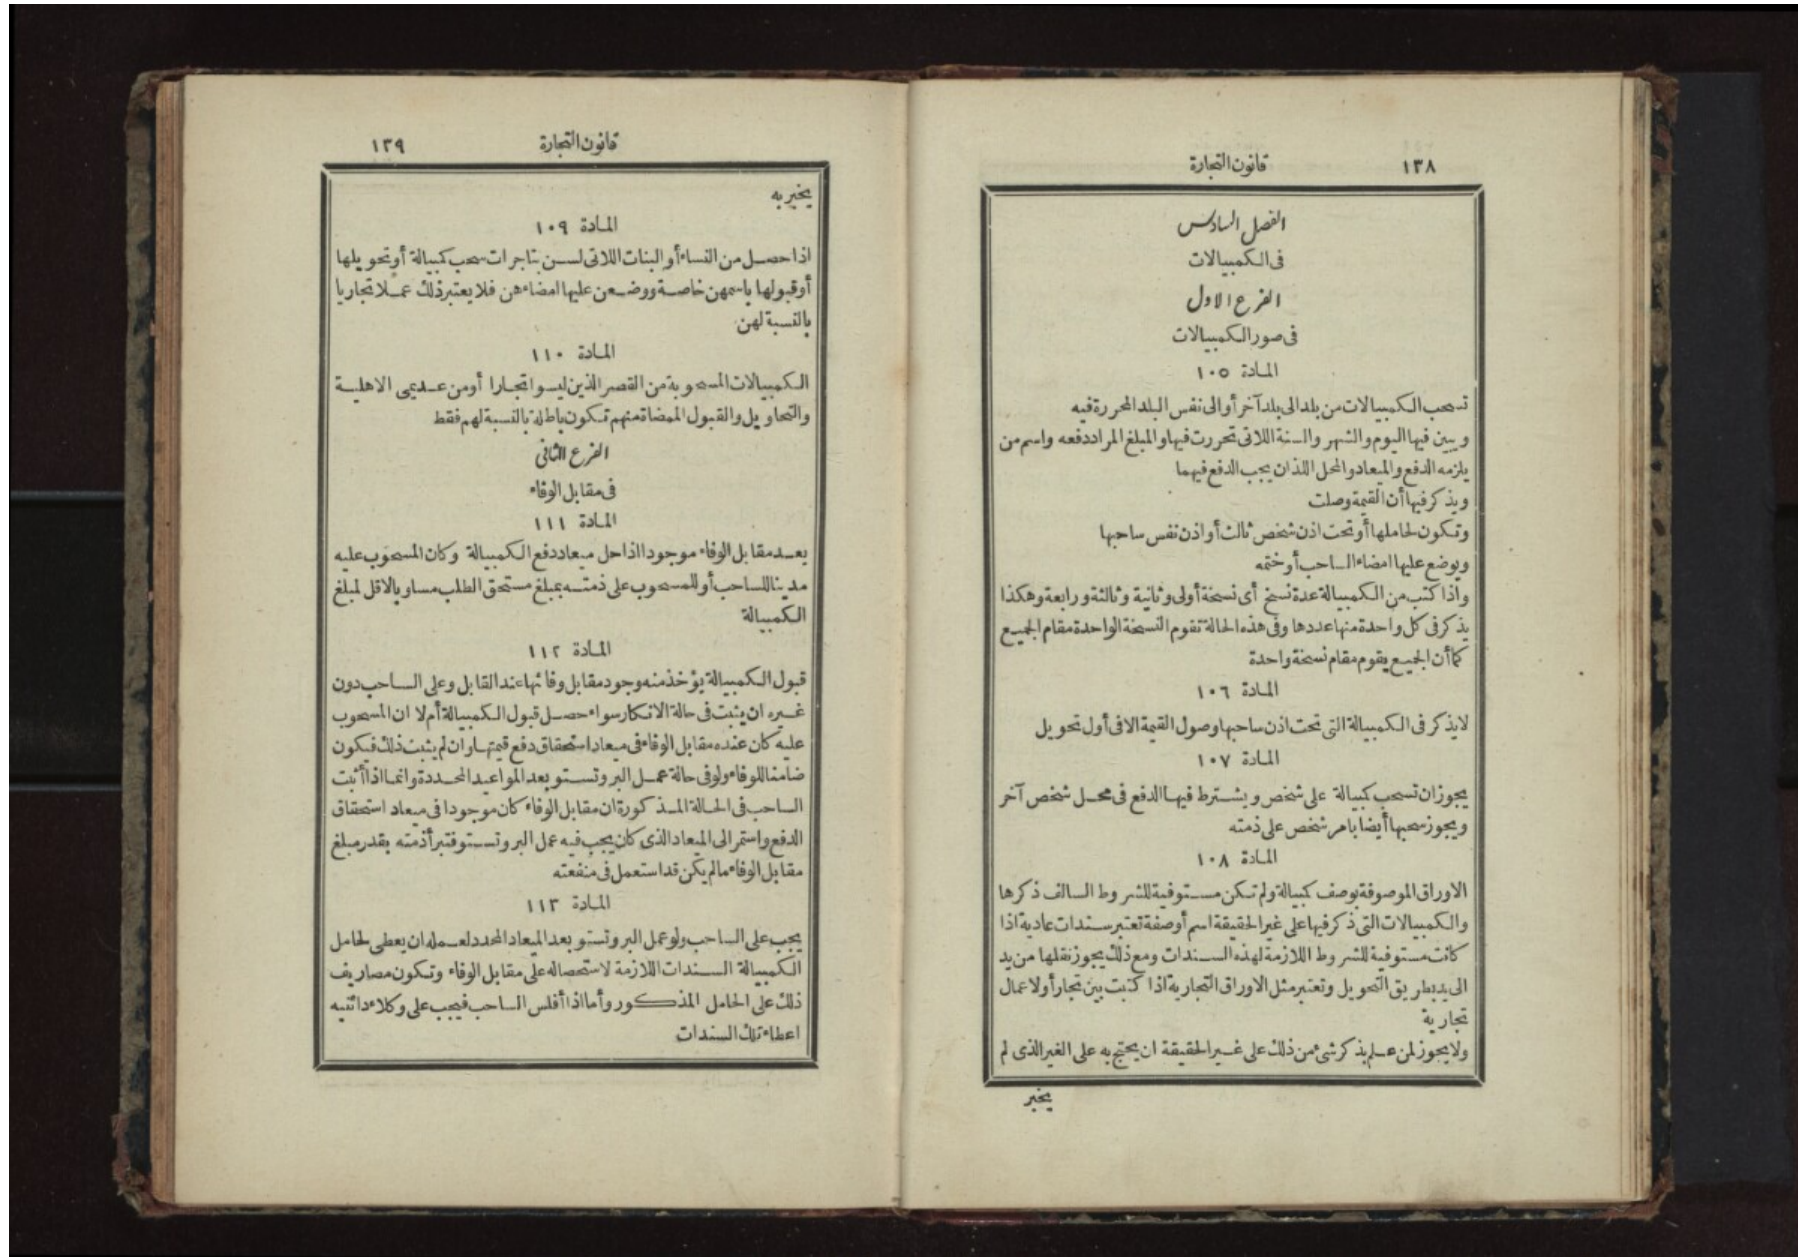 ١٣٨ قانون التجارة
الفصل السادس
فى الكمبيالات
الفرع الاول
فى صور الكمبيالات
المادة ١٠٥
تسحب الكمبيالات من بلد الى بلد آخر أو الى نفس البلد المحررة فيه
ويبين فيها اليوم والشهر والسنة اللاتى تحررت فيها والمبلغ المراد دفعه واسم من
يلزمه الدفع والميعاد والمحل اللذان يجب الدفع فيهما
ويذكر فيها أن القيمة وصلت
وتكون لحاملها أو تحت اذن شخص ثالث أو اذن نفس ساحبها
ويوضع عليها امضاء الساحب أو ختمه
واذا كتب من الكمبيالة عدة نسخ أى نسخة أولى وثانية وثالثة ورابعة وهكذا
يذكر فى كل واحدة منها عددها وفى هذه الحالة تقوم النسخة الواحدة مقام الجميع
كما أن الجميع يقوم مقام نسخة واحدة
المادة ١٠٦
لا يذكر فى الكمبيالة التى تحت اذن ساحبها وصول القيمة الا فى أول تحويل
المادة ١٠٧
يجوز ان تسحب كمبيالة على شخص ويشترط فيها الدفع فى محل شخص آخر
ويجوز سحبها أيضا بامر شخص على ذمته
المادة ١٠٨
الاوراق الموصوفة بوصف كمبيالة ولم تكن مستوفية للشروط السالف ذكرها
والكمبيالات التى ذكر فيها على غير الحقيقة اسم أو صفة تعتبر سندات عادية اذا
كانت مستوفية للشروط اللازمة لهذه السندات ومع ذلك يجوز نقلها من يد
الى يد بطريق التحويل وتعتبر مثل الاوراق التجارية اذا كتبت بين تجار أو لاعمال
تجارية
ولا يجوز لمن علم بذكر شئ من ذلك على غير الحقيقة ان يحتج به على الغير الذى لم
يخبر
قانون التجارة ١٣٩
يخبر به
المادة ١٠٩
اذا حصل من النساء أو البنات اللاتى لسن بتاجرات سحب كمبيالة أو تحويلها
أو قبولها باسمهن خاصة ووضعن عليها امضاءهن فلا يعتبر ذلك عملا تجاريا
بالنسبة لهن
المادة ١١٠
الكمبيالات المسحوبة من القصر الذين ليسوا تجارا أو من عديمى الاهلية
والتحاويل والقبول الممضاة منهم تكون باطلة بالنسبة لهم فقط
الفرع الثانى
فى مقابل الوفاء
المادة ١١١
يعد مقابل الوفاء موجودا اذا حل ميعاد دفع الكمبيالة وكان المسحوب عليه
مدينا للساحب أو للمسحوب على ذمته بمبلغ مستحق الطلب مساو بالاقل لمبلغ
الكمبيالة
المادة ١١٢
قبول الكمبيالة يؤخذ منه وجود مقابل وفائها عند القابل وعلى الساحب دون
غيره ان يثبت فى حالة الانكار سواء حصل قبول الكمبيالة أم لا ان المسحوب
عليه كان عنده مقابل الوفاء فى ميعاد استحقاق دفع قيمتها وان لم يثبت ذلك فيكون
ضامنا للوفاء ولو فى حالة عمل البروتستو بعد المواعيد المحددة وانما اذا أثبت
الساحب فى الحالة المذكورة ان مقابل الوفاء كان موجودا فى ميعاد استحقاق
الدفع واستمر الى الميعاد الذى كان يجب فيه عمل البروتستو فتبرأ ذمته بقدر مبلغ
مقابل الوفاء ما لم يكن قد استعمل فى منفعته
المادة ١١٣
يجب على الساحب ولو عمل البروتستو بعد الميعاد المحدد لعمله ان يعطى لحامل
الكمبيالة السندات اللازمة لاستحصاله على مقابل الوفاء وتكون مصاريف
ذلك على الحامل المذكور وأما اذا أفلس الساحب فيجب على وكلاء دائنيه
اعطاء تلك السندات